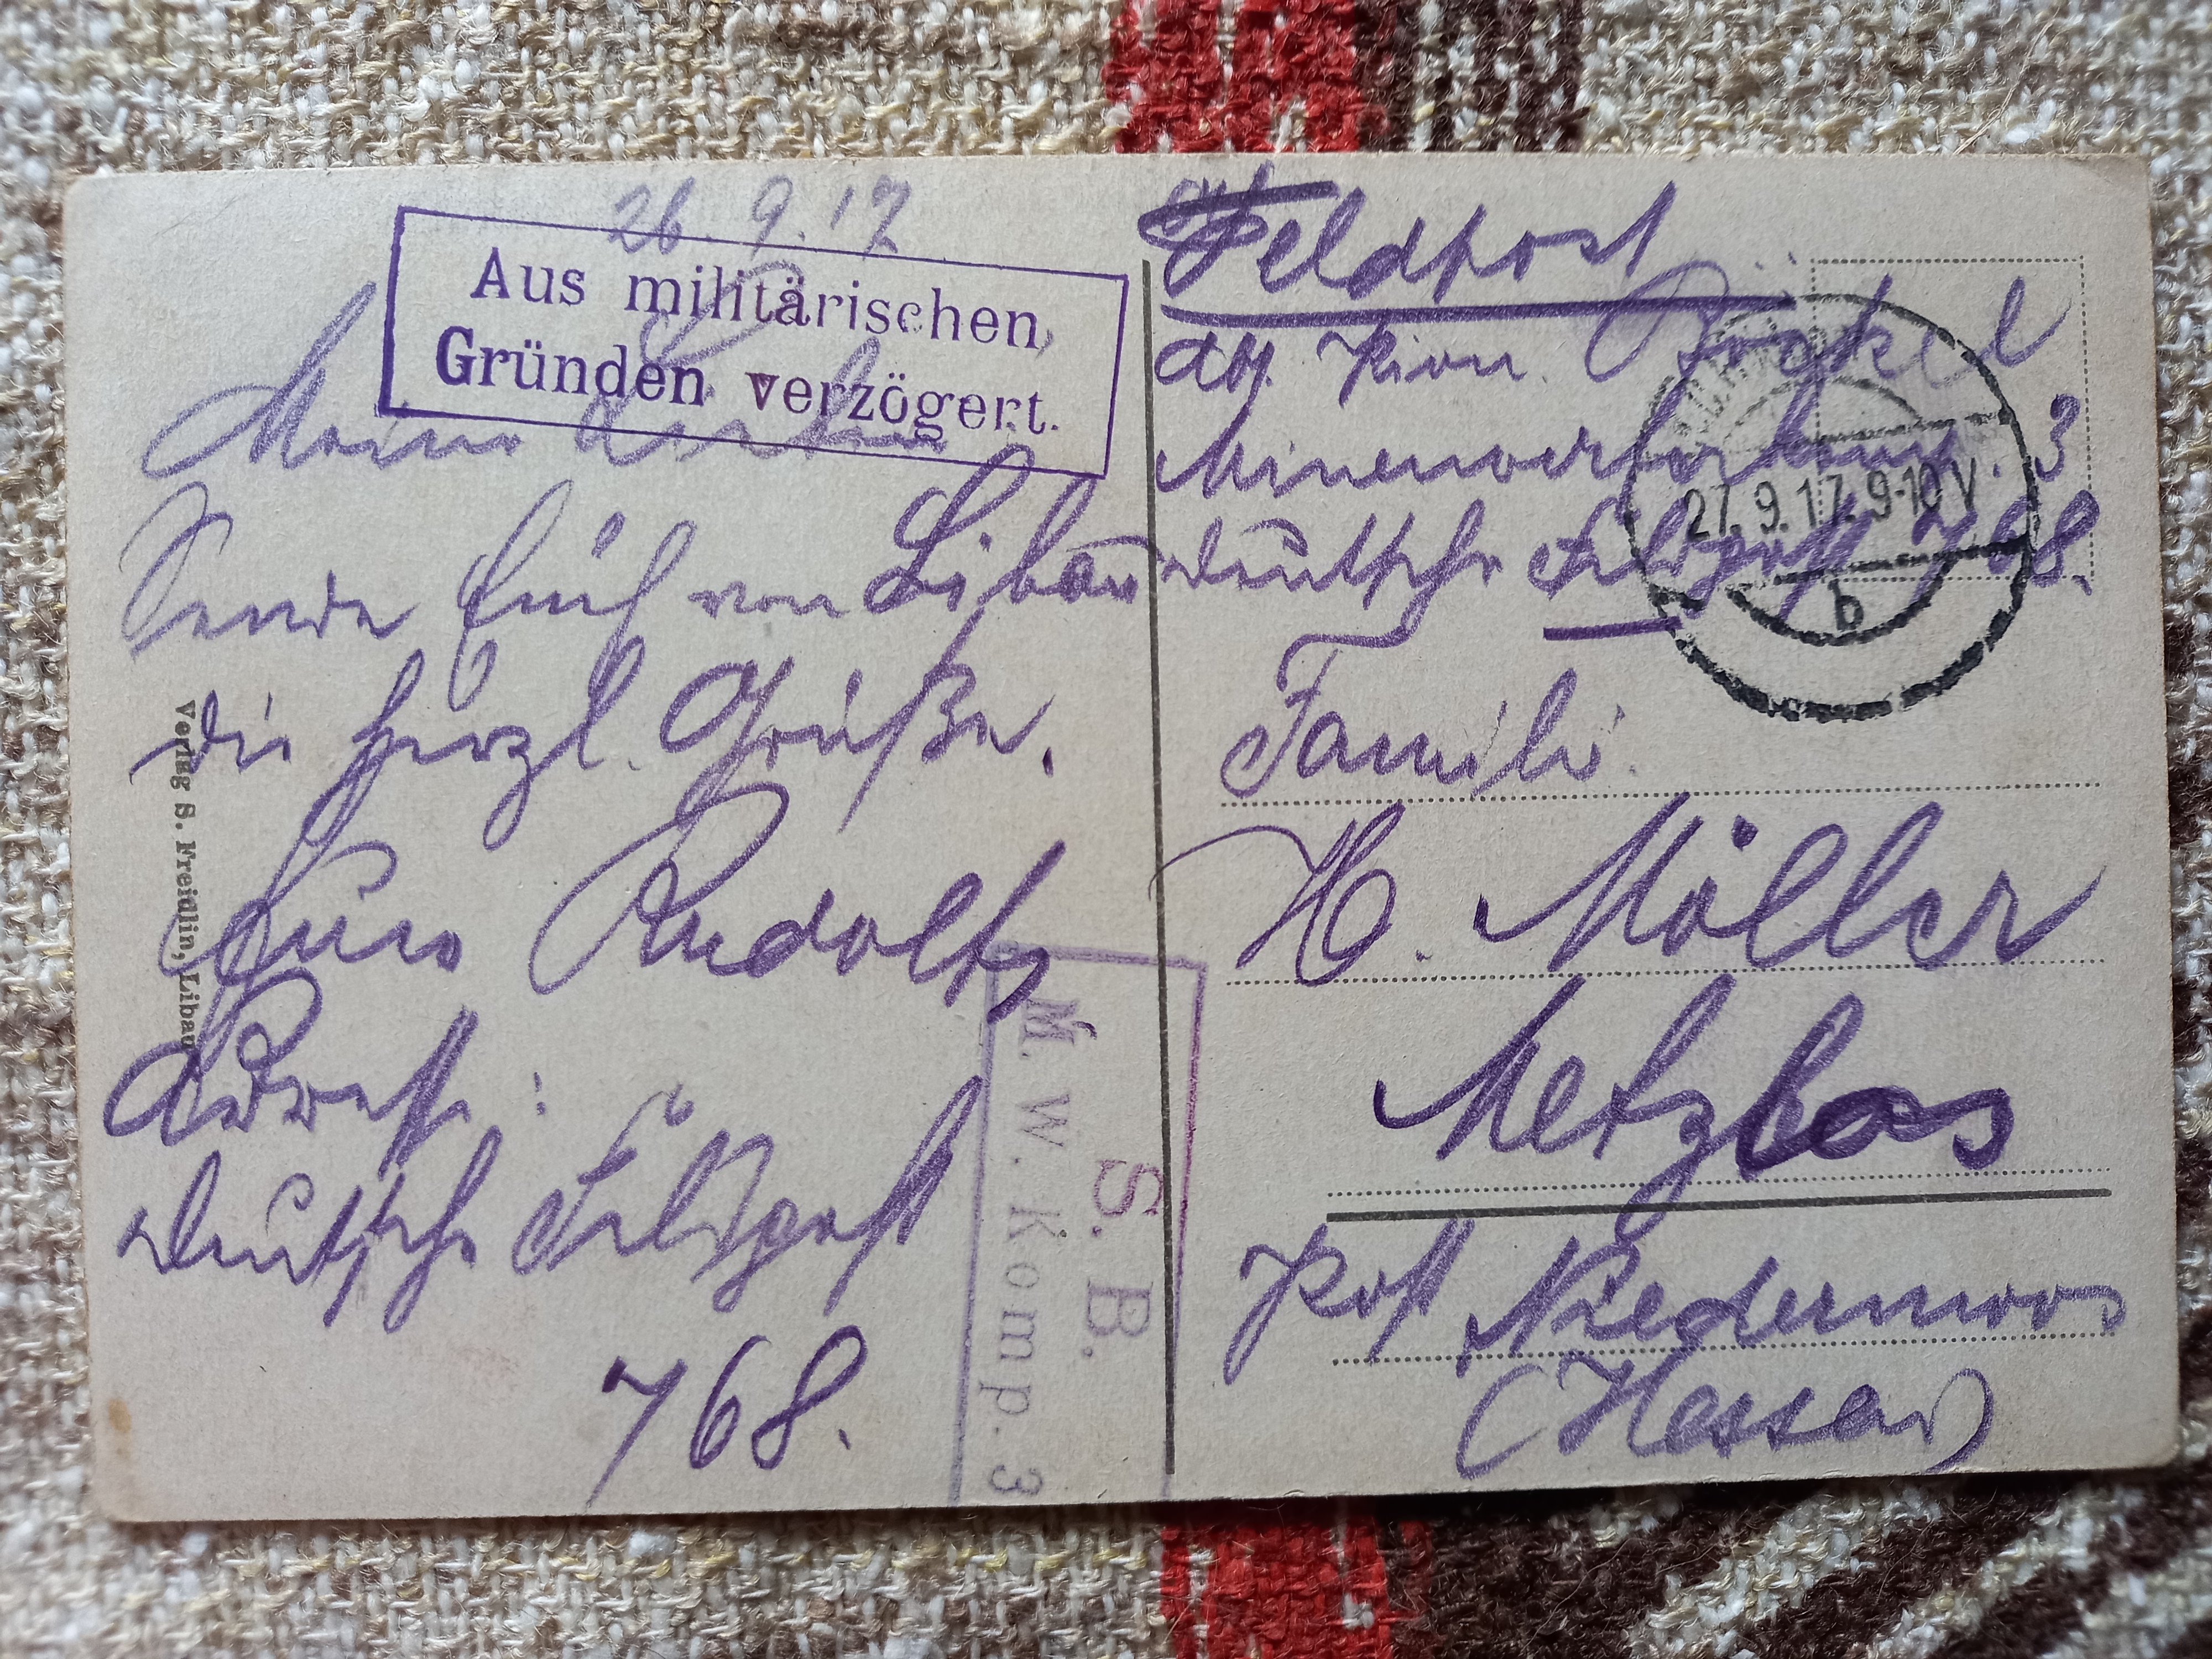 26. 9. 17
Aus militärischen
Gründen verzögert.
Meine Lieben
Sende Euch von Libau
die herzl. Grüße.
Euer Rudolf
Adresse:
Deutsche Feldpost
768.
Verlag S. Freidlin, Libau
S. B.
M. W. Komp. 3
Feldpost
Abs. Pion.
Minenwerferkomp. 3
Deutsche Feldpost 768.
27. 9. 17. 9-10 V
b
Familie
H. Möller
Metzlos
Post Niedermoos
(Hessen)